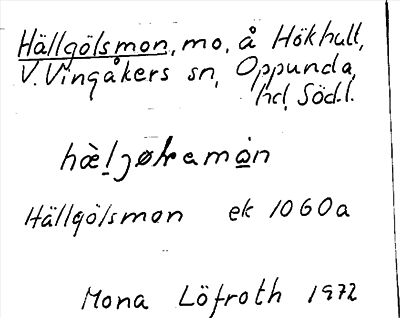 Hällgölsmon, mo, å Hökhult,
V. Vingåkers sn, Oppunda
hd, Södl.
Hällgölsmon ek 1060a
Mona Löfroth 1972